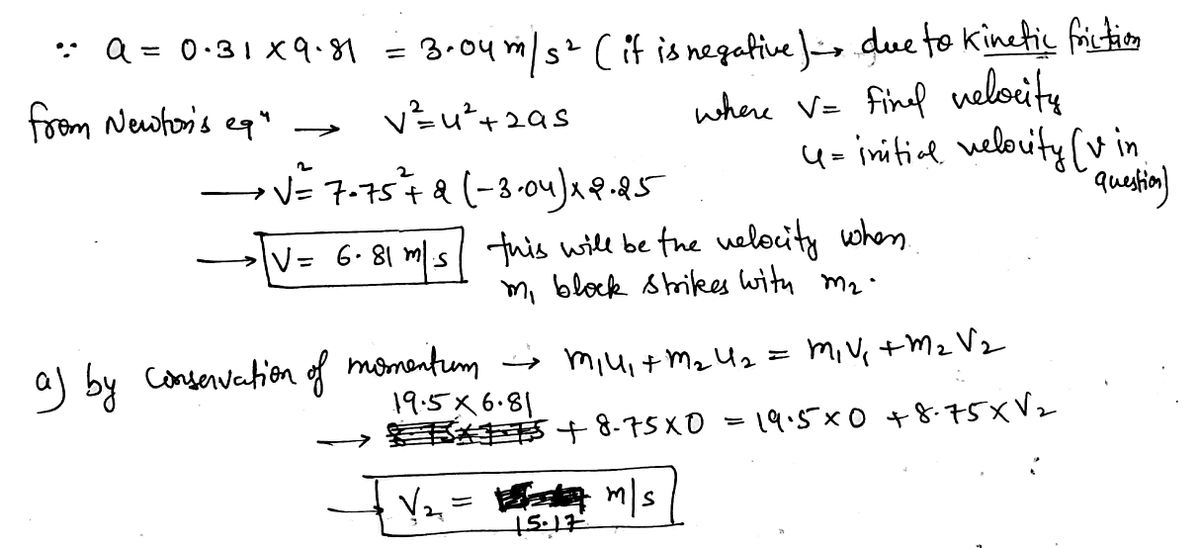 ∵ a = 0.31 × 9.81 = 3.04 m/s² (it is negative) → due to Kinetic friction
from Newton's eqⁿ → v² = u² + 2as where V = Final velocity
u = initial velocity (v in question)
→ V² = 7.75² + 2 (-3.04) × 2.25
→ V = 6.81 m/s this will be the velocity when
m₁ block strikes with m₂.
a) by Conservation of momentum → m₁u₁ + m₂u₂ = m₁V₁ + m₂V₂
→ 19.5 × 6.81 + 8.75 × 0 = 19.5 × 0 + 8.75 × V₂
→ V₂ = 15.17 m/s